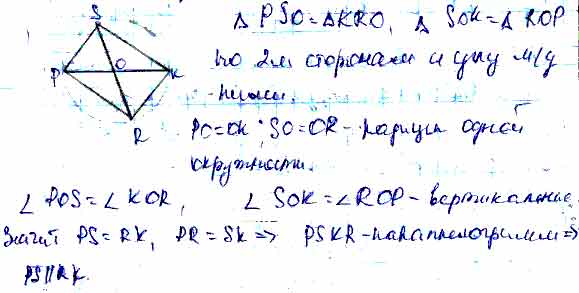 S
P O K
R
Δ PSO = ΔKRO, Δ SOK = Δ ROP
по 2м сторонам и углу м/д
ними.
PO=OK; SO=OR - радиусы одной
окружности.
∠ POS = ∠ KOR, ∠ SOK = ∠ ROP - вертикальные.
Значит PS = RK, PR = SK => PSKR - параллелограмм =>
PS||RK.